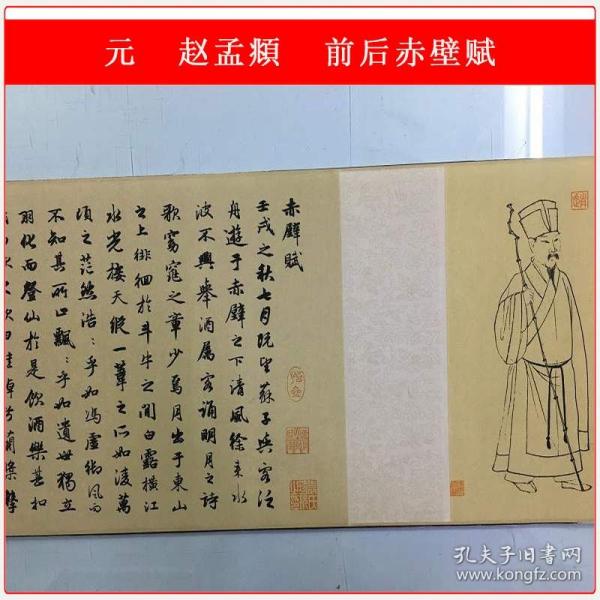 元 赵孟頫 前后赤壁赋
赤壁賦
壬戌之秋七月既望蘇子與客泛
舟遊于赤壁之下清風徐来水
波不興舉酒属客誦明月之詩
歌窈窕之章少焉月出于東山
之上徘徊於斗牛之間白露橫江
水光接天縱一葦之所如凌萬
頃之茫然浩:乎如馮虛御風而
不知其所止飄:乎如遺世獨立
羽化而登仙於是飲酒樂甚扣
歌曰桂棹兮蘭槳擊
孔夫子旧书网
www.kongfz.com